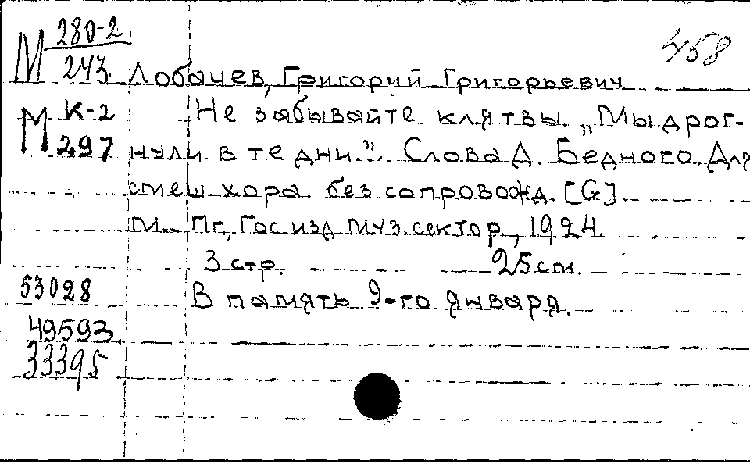 458
М 280-2
243
Лобачев, Григорий Григорьевич
М К-2
297
Не забывайте клятвы. „Мы дрог-
нули в те дни.". Слова Д. Бедного. Для
смеш. хора без сопровожд. [G].
М. Пг., Госизд. муз. сектор, 1924.
3 стр. 25 см.
В память 9-го января.
53028
49593
33395